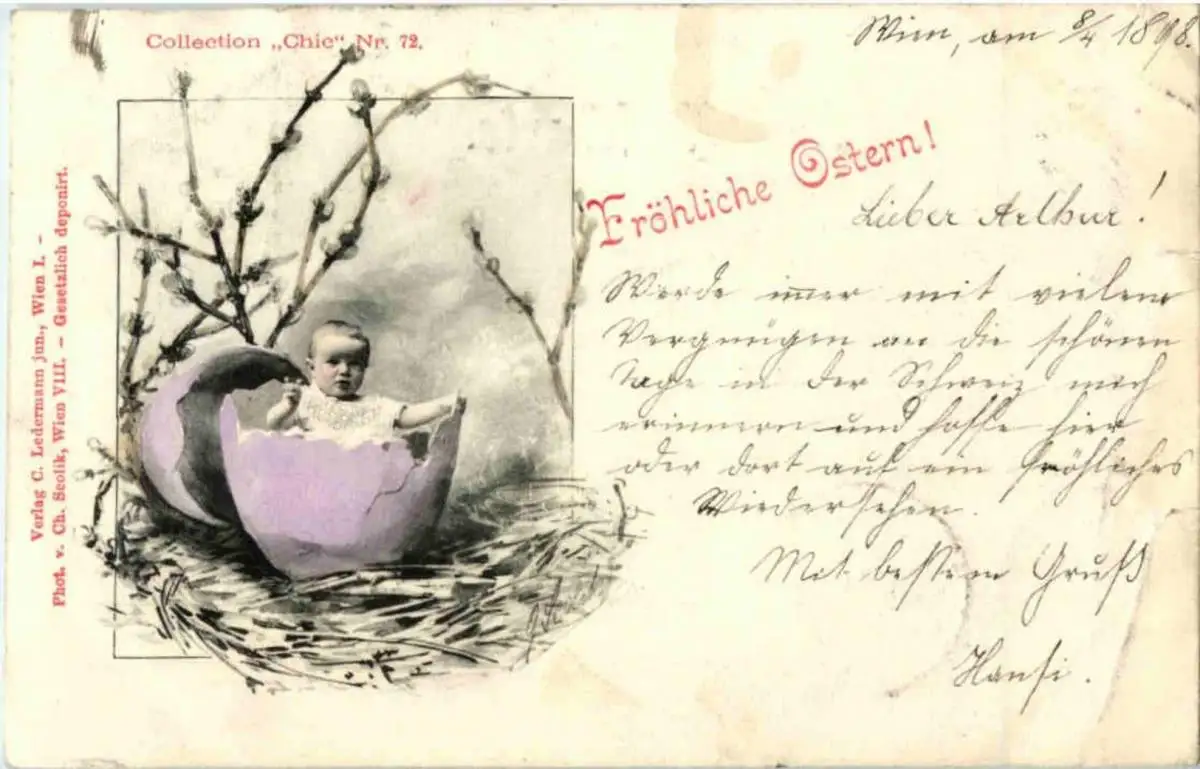 Collection „Chic“ Nr. 72.
Wien, am 8/4 1898.
Fröhliche Ostern!
Lieber Arthur!
Werde immer mit vielem
Vergnügen an die schönen
Tage in der Schweiz mich
erinnern und hoffe hier
oder dort auf ein fröhliches
Wiedersehen.
Mit bestem Gruß
Hansi.
Verlag C. Ledermann jun., Wien I. –
Phot. v. Ch. Scolik, Wien VIII. – Gesetzlich deponirt.